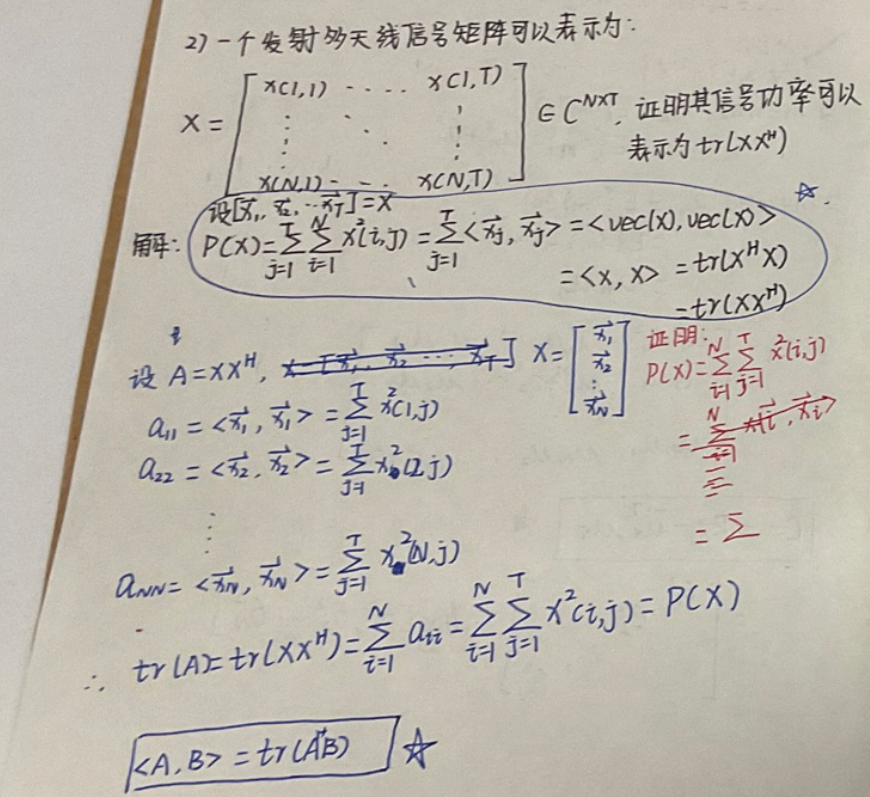 2) 一个发射多天线信号矩阵可以表示为:
X = [ x(1,1) ‐ ‐ ‐ ‐ x(1,T) ⋮ ⋱ ⋮ x(N,1) ‐ ‐ ‐ x(N,T) ] ∈ C^{N×T}, 证明其信号功率可以
表示为 tr(XX^H)
设[\vec{x_1}, \vec{x_2}, ⋯ \vec{x_T}] = X
解: P(X) = \sum_{j=1}^{T} \sum_{i=1}^{N} x^2(i,j) = \sum_{j=1}^{T} <\vec{x_j}, \vec{x_j}> = <vec(x), vec(x)> ☆
= <x, x> = tr(X^H X)
= tr(XX^H)
设 A = XX^H, X = [ \vec{x_1} \vec{x_2} ⋮ \vec{x_N} ]
a_{11} = <\vec{x_1}, \vec{x_1}> = \sum_{j=1}^{T} x^2(1,j)
a_{22} = <\vec{x_2}, \vec{x_2}> = \sum_{j=1}^{T} x^2(2,j)
⋮
a_{NN} = <\vec{x_N}, \vec{x_N}> = \sum_{j=1}^{T} x^2(N,j)
∴ tr(A) = tr(XX^H) = \sum_{i=1}^{N} a_{ii} = \sum_{i=1}^{N} \sum_{j=1}^{T} x^2(i,j) = P(X)
<A, B> = tr(A^H B) ☆
证明:
P(X) = \sum_{i=1}^{N} \sum_{j=1}^{T} x^2(i,j)
= \sum